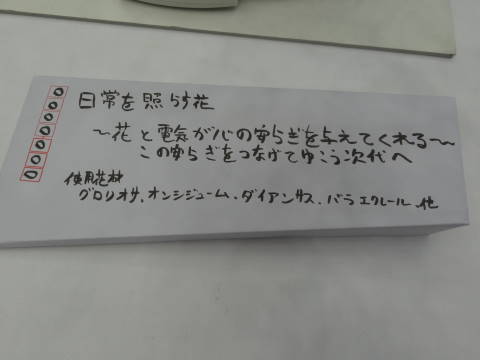 日常を照らす花
～花と電気が心の安らぎを与えてくれる～
この安らぎをつなげてゆこう次代へ
使用花材
グロリオサ、オンシジューム、ダイアンサス、バラエクレール、他